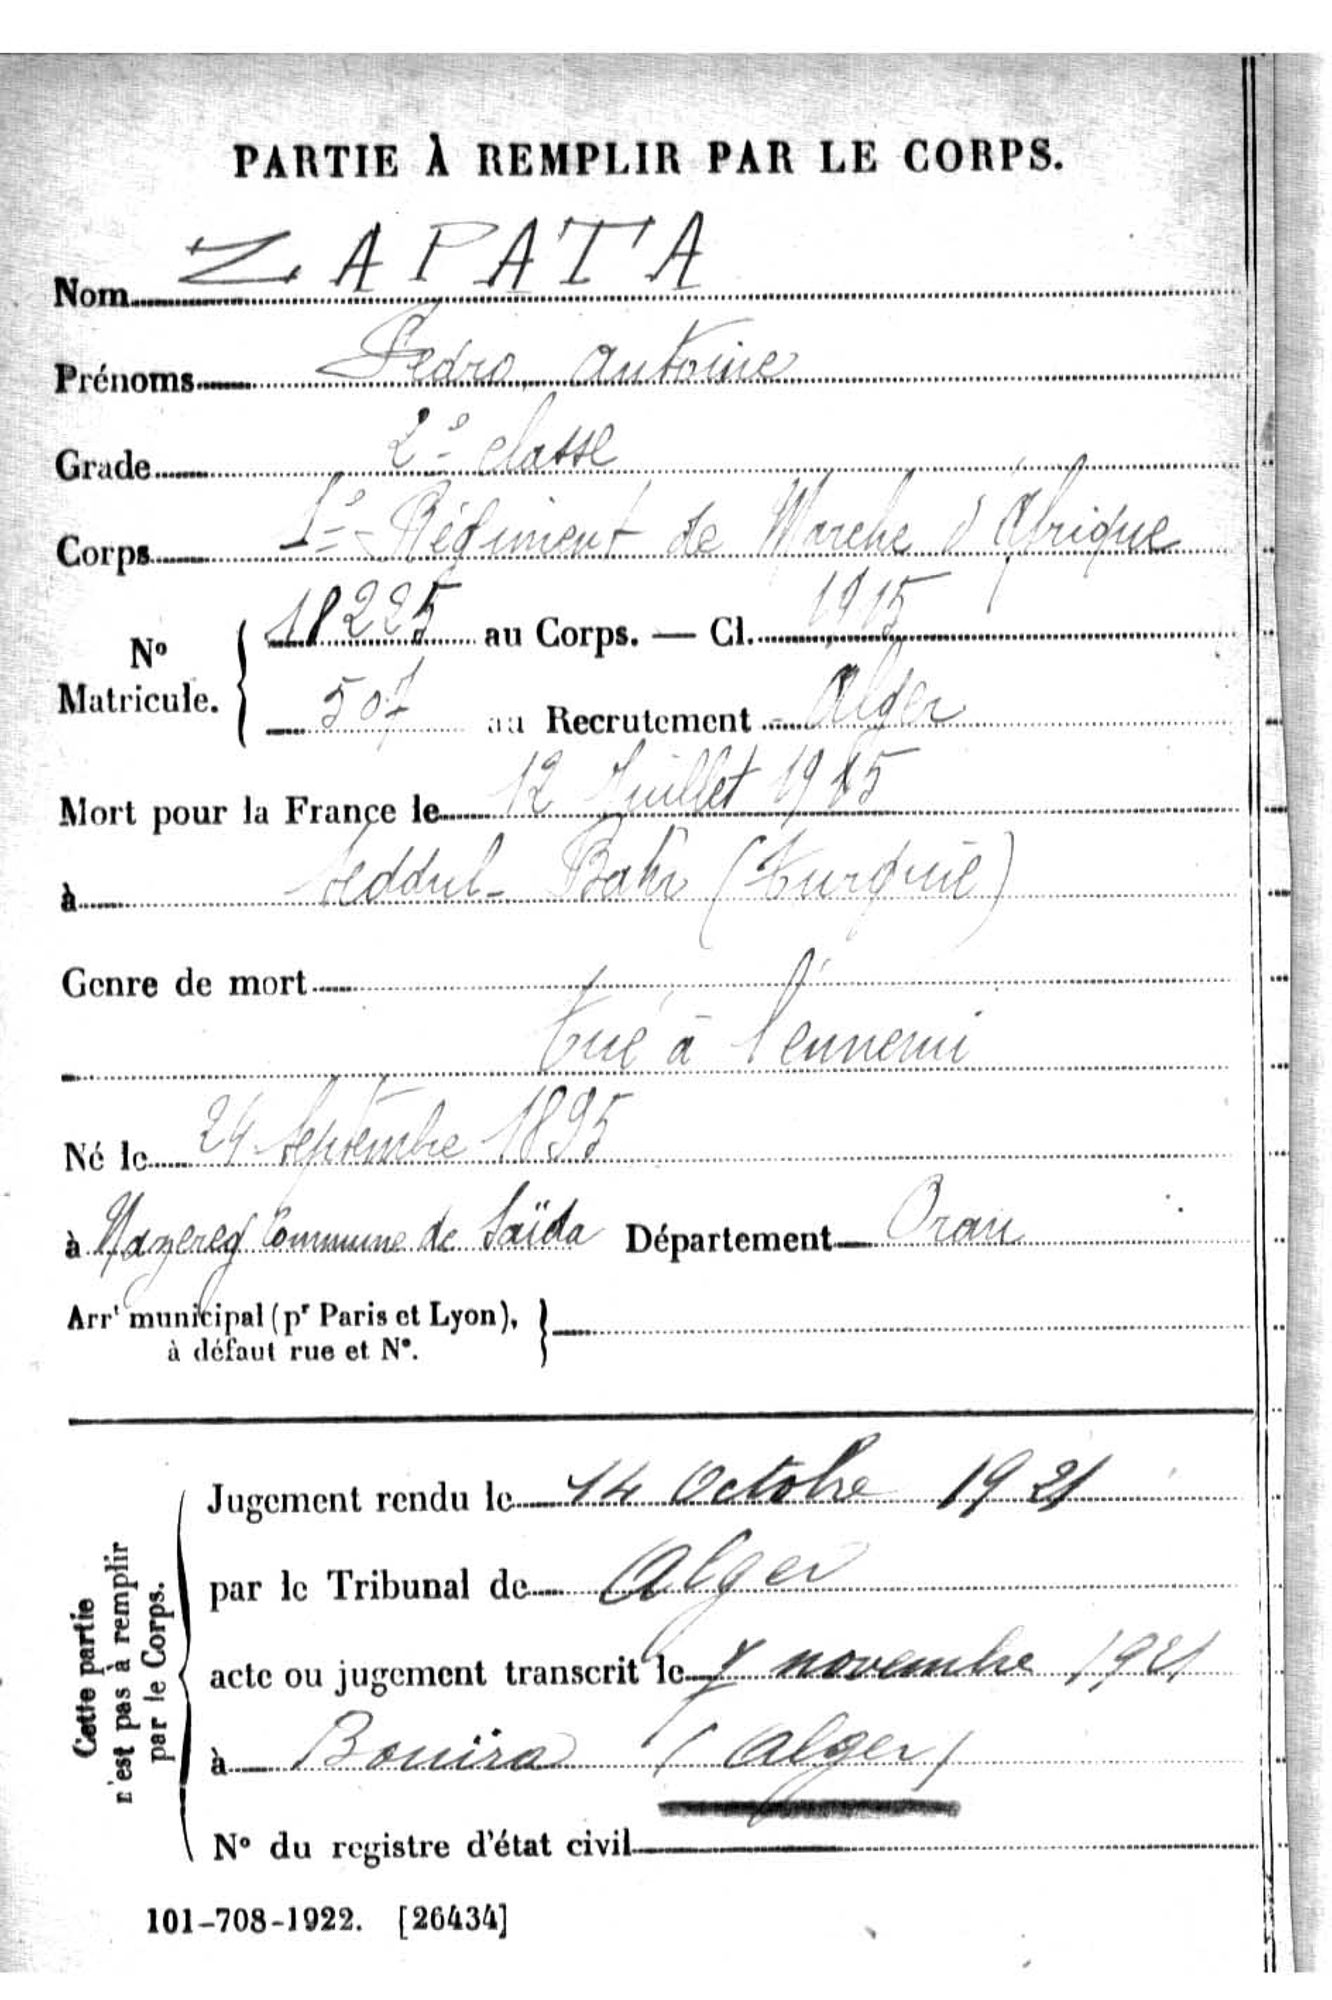 PARTIE À REMPLIR PAR LE CORPS.
Nom ZAPATA
Prénoms Pedro, Antoine
Grade 2e classe
Corps 1e Régiment de Marche d'Afrique
No Matricule. { 18225 au Corps. — Cl. 1915
507 au Recrutement Alger
Mort pour la France le 12 Juillet 1915
à Seddul-Bahr (Turquie)
Genre de mort
tué à l'ennemi
Né le 24 Septembre 1895
à Nazereg Commune de Saïda Département Oran
Arrt municipal (pr Paris et Lyon), }
à défaut rue et No.
Cette partie
n'est pas à remplir
par le Corps.
Jugement rendu le 14 Octobre 1921
par le Tribunal de Alger
acte ou jugement transcrit le 7 novembre 1921
à Bouira (Alger)
No du registre d'état civil
101-708-1922. [26434]